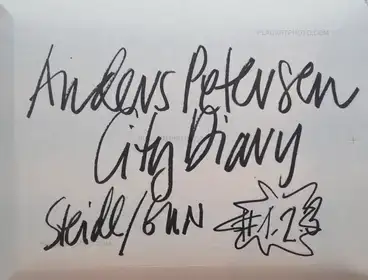 Anders Petersen
City Diary
Steidl/GUN #1.2.3